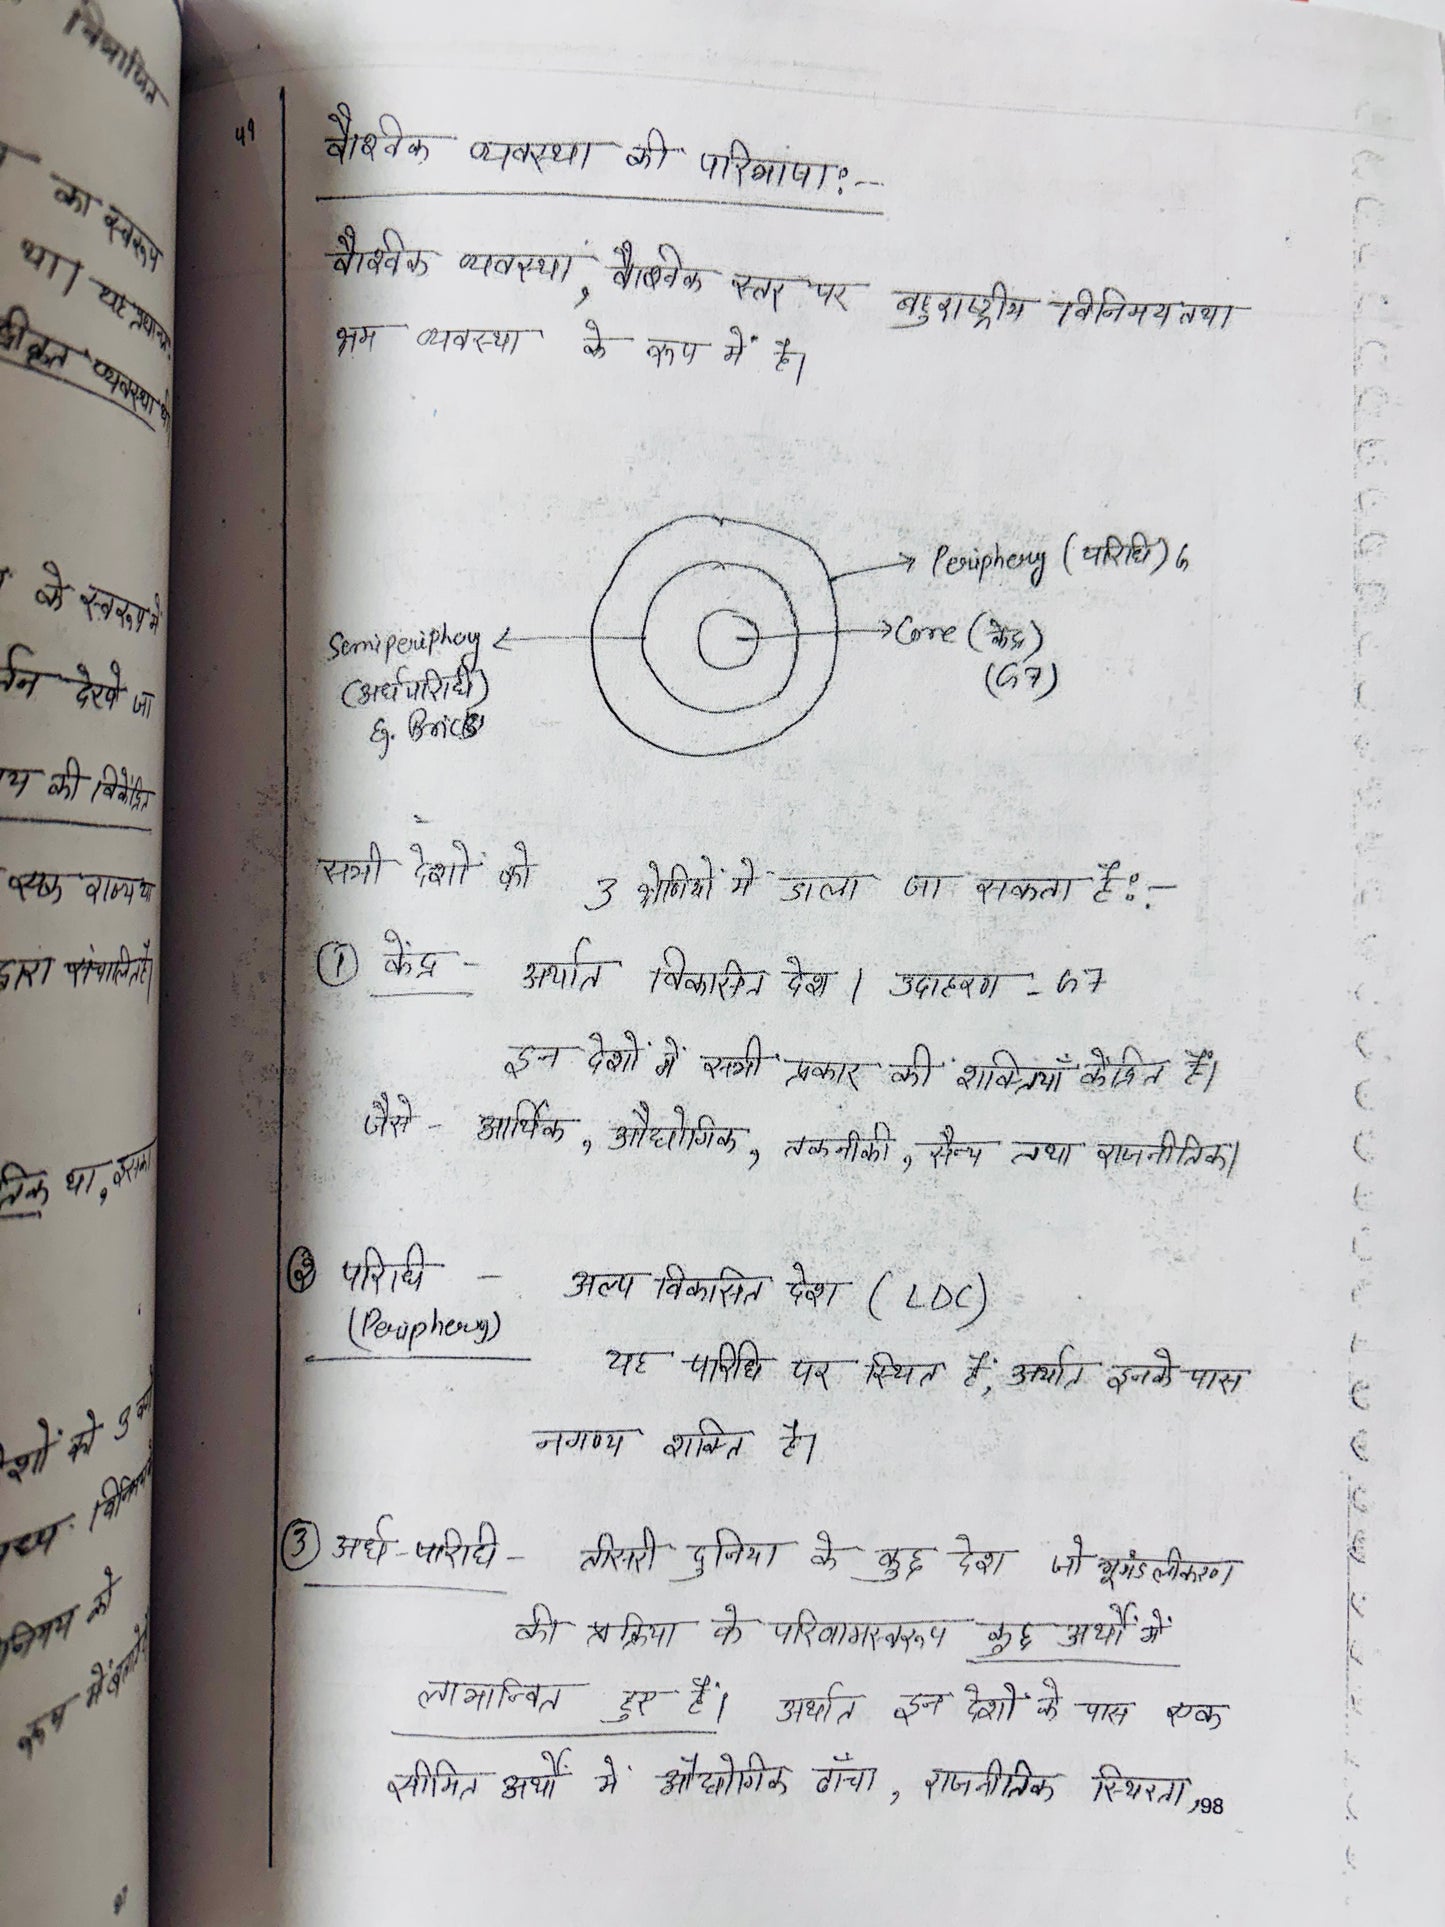 विभाजित
का स्वरूप
था। यह प्रधानतः
व्यवस्था थी
के स्वरूप में
देखे जा
की विकेंद्रित
एक राज्य या
द्वारा संचालित है।
था, इसका
को 3
विनिमय
को
रूप में
49
वैश्विक व्यवस्था की परिभाषा:-
वैश्विक व्यवस्था, वैश्विक स्तर पर बहुराष्ट्रीय विनिमय तथा
श्रम व्यवस्था के रूप में है।
Periphery (परिधि) G
Semiperiphery
Core (केंद्र)
(अर्धपरिधि)
(G7)
Eg. Brics
सभी देशों को 3 श्रेणियों में डाला जा सकता है:-
① केंद्र - अर्थात विकसित देश। उदाहरण - G7
इन देशों में सभी प्रकार की शक्तियाँ केंद्रित हैं।
जैसे - आर्थिक, औद्योगिक, तकनीकी, सैन्य तथा राजनीतिक।
② परिधि - अल्प विकसित देश (LDC)
(Periphery)
यह परिधि पर स्थित हैं, अर्थात इनके पास
नगण्य शक्ति है।
③ अर्ध-परिधि - तीसरी दुनिया के कुछ देश जो भूमंडलीकरण
की प्रक्रिया के परिणामस्वरूप कुछ अर्थों में
लाभान्वित हुए हैं। अर्थात इन देशों के पास एक
सीमित अर्थों में औद्योगिक ढाँचा, राजनीतिक स्थिरता,
98